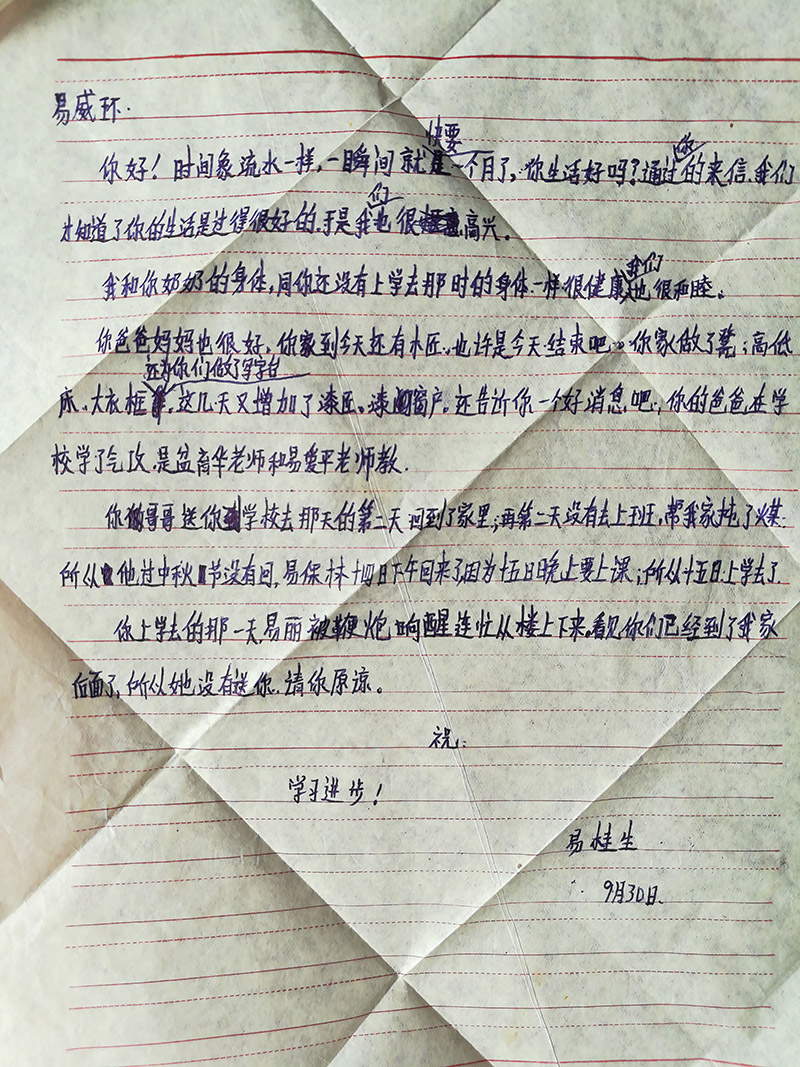 易威环.
你好！时间象流水一样,一瞬间就是快要一个月了,你生活好吗？通过你的来信,我们
才知道了你的生活是过得很好的.于是我们也很高兴。
我和你奶奶的身体,同你还没有上学去那时的身体一样很健康,我们也很和睦。
你爸爸妈妈也很好,你家到今天还有木匠.也许是今天结束吧。你家做了凳;高低
床、大衣框,还为你们做了写字台.这几天又增加了漆匠。漆窗户。还告诉你一个好消息吧.,你的爸爸在学
校学了气攻.是盆商华老师和易爱平老师教.
你哥哥送你学校去那天的第二天回到了家里;再第二天没有去上班,帮我家挑了煤.
所以他过中秋节没有回,易保林十四日下午回来了因为十五日晚上要上课;所以十五日上学去了
你上学去的那一天,易丽被鞭炮响醒连忙从楼上下来。看见你们已经到了我家
后面了,所以她没有送你.请你原谅。
祝:
学习进步！
易桂生
9月30日.